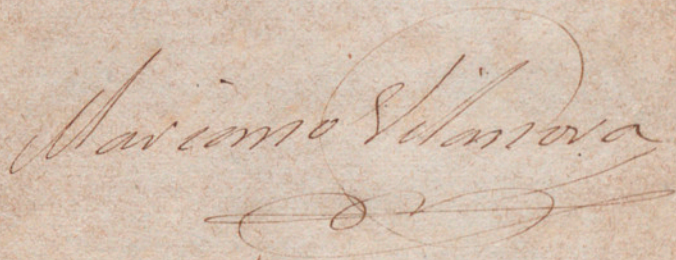 Mariano Vilanova